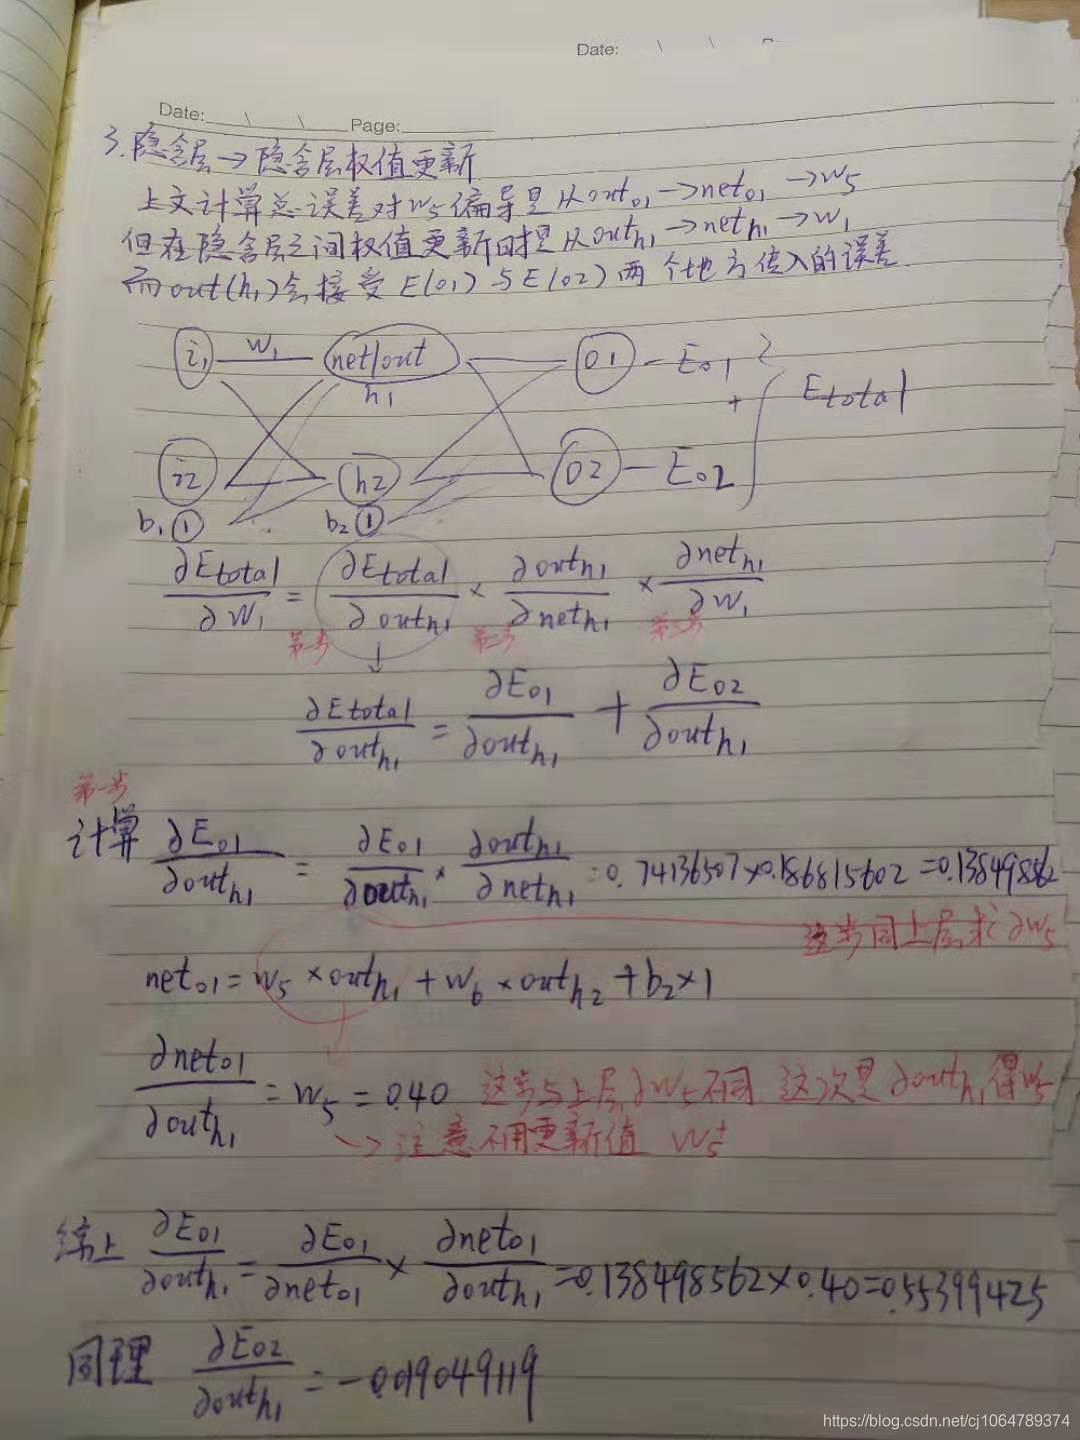 Date: \ \
Date: \ \ Page:
3.隐含层→隐含层权值更新
上文计算总误差对w₅偏导是从out₀₁→net₀₁→w₅
但在隐含层之间权值更新时是从outₕ₁→netₕ₁→w₁
而out(h₁)会接受E(o₁)与E(o2)两个地方传入的误差.
i₁ w₁ net/out o1 - Eo1
h₁ + Etotal
i2 h2 o2 - Eo2
b₁ ① b₂ ①
∂Etotal/∂w₁ = ∂Etotal/∂outh₁ × ∂outh₁/∂neth₁ × ∂neth₁/∂w₁
第一步 第二步 第三步
↓
∂Etotal/∂outh₁ = ∂Eo1/∂outh₁ + ∂Eo2/∂outh₁
第一步
计算 ∂Eo1/∂outh₁ = ∂Eo1/∂outh₁ × ∂outh₁/∂neth₁ = 0.74136507×0.186815602=0.138498562
这步同上层求∂w₅
neto1 = w₅×outh₁+w₆×outh₂+b₂×1
∂neto1/∂outh₁ = w₅ = 0.40 这步与上层∂w₅不同 这次是∂outh₁得w₅
→注意不用更新值 w₅⁺
综上 ∂Eo1/∂outh₁ = ∂Eo1/∂neto1 × ∂neto1/∂outh₁ =0.138498562×0.40=0.55399425
同理 ∂Eo2/∂outh₁ = -0.019049119
https://blog.csdn.net/cj1064789374